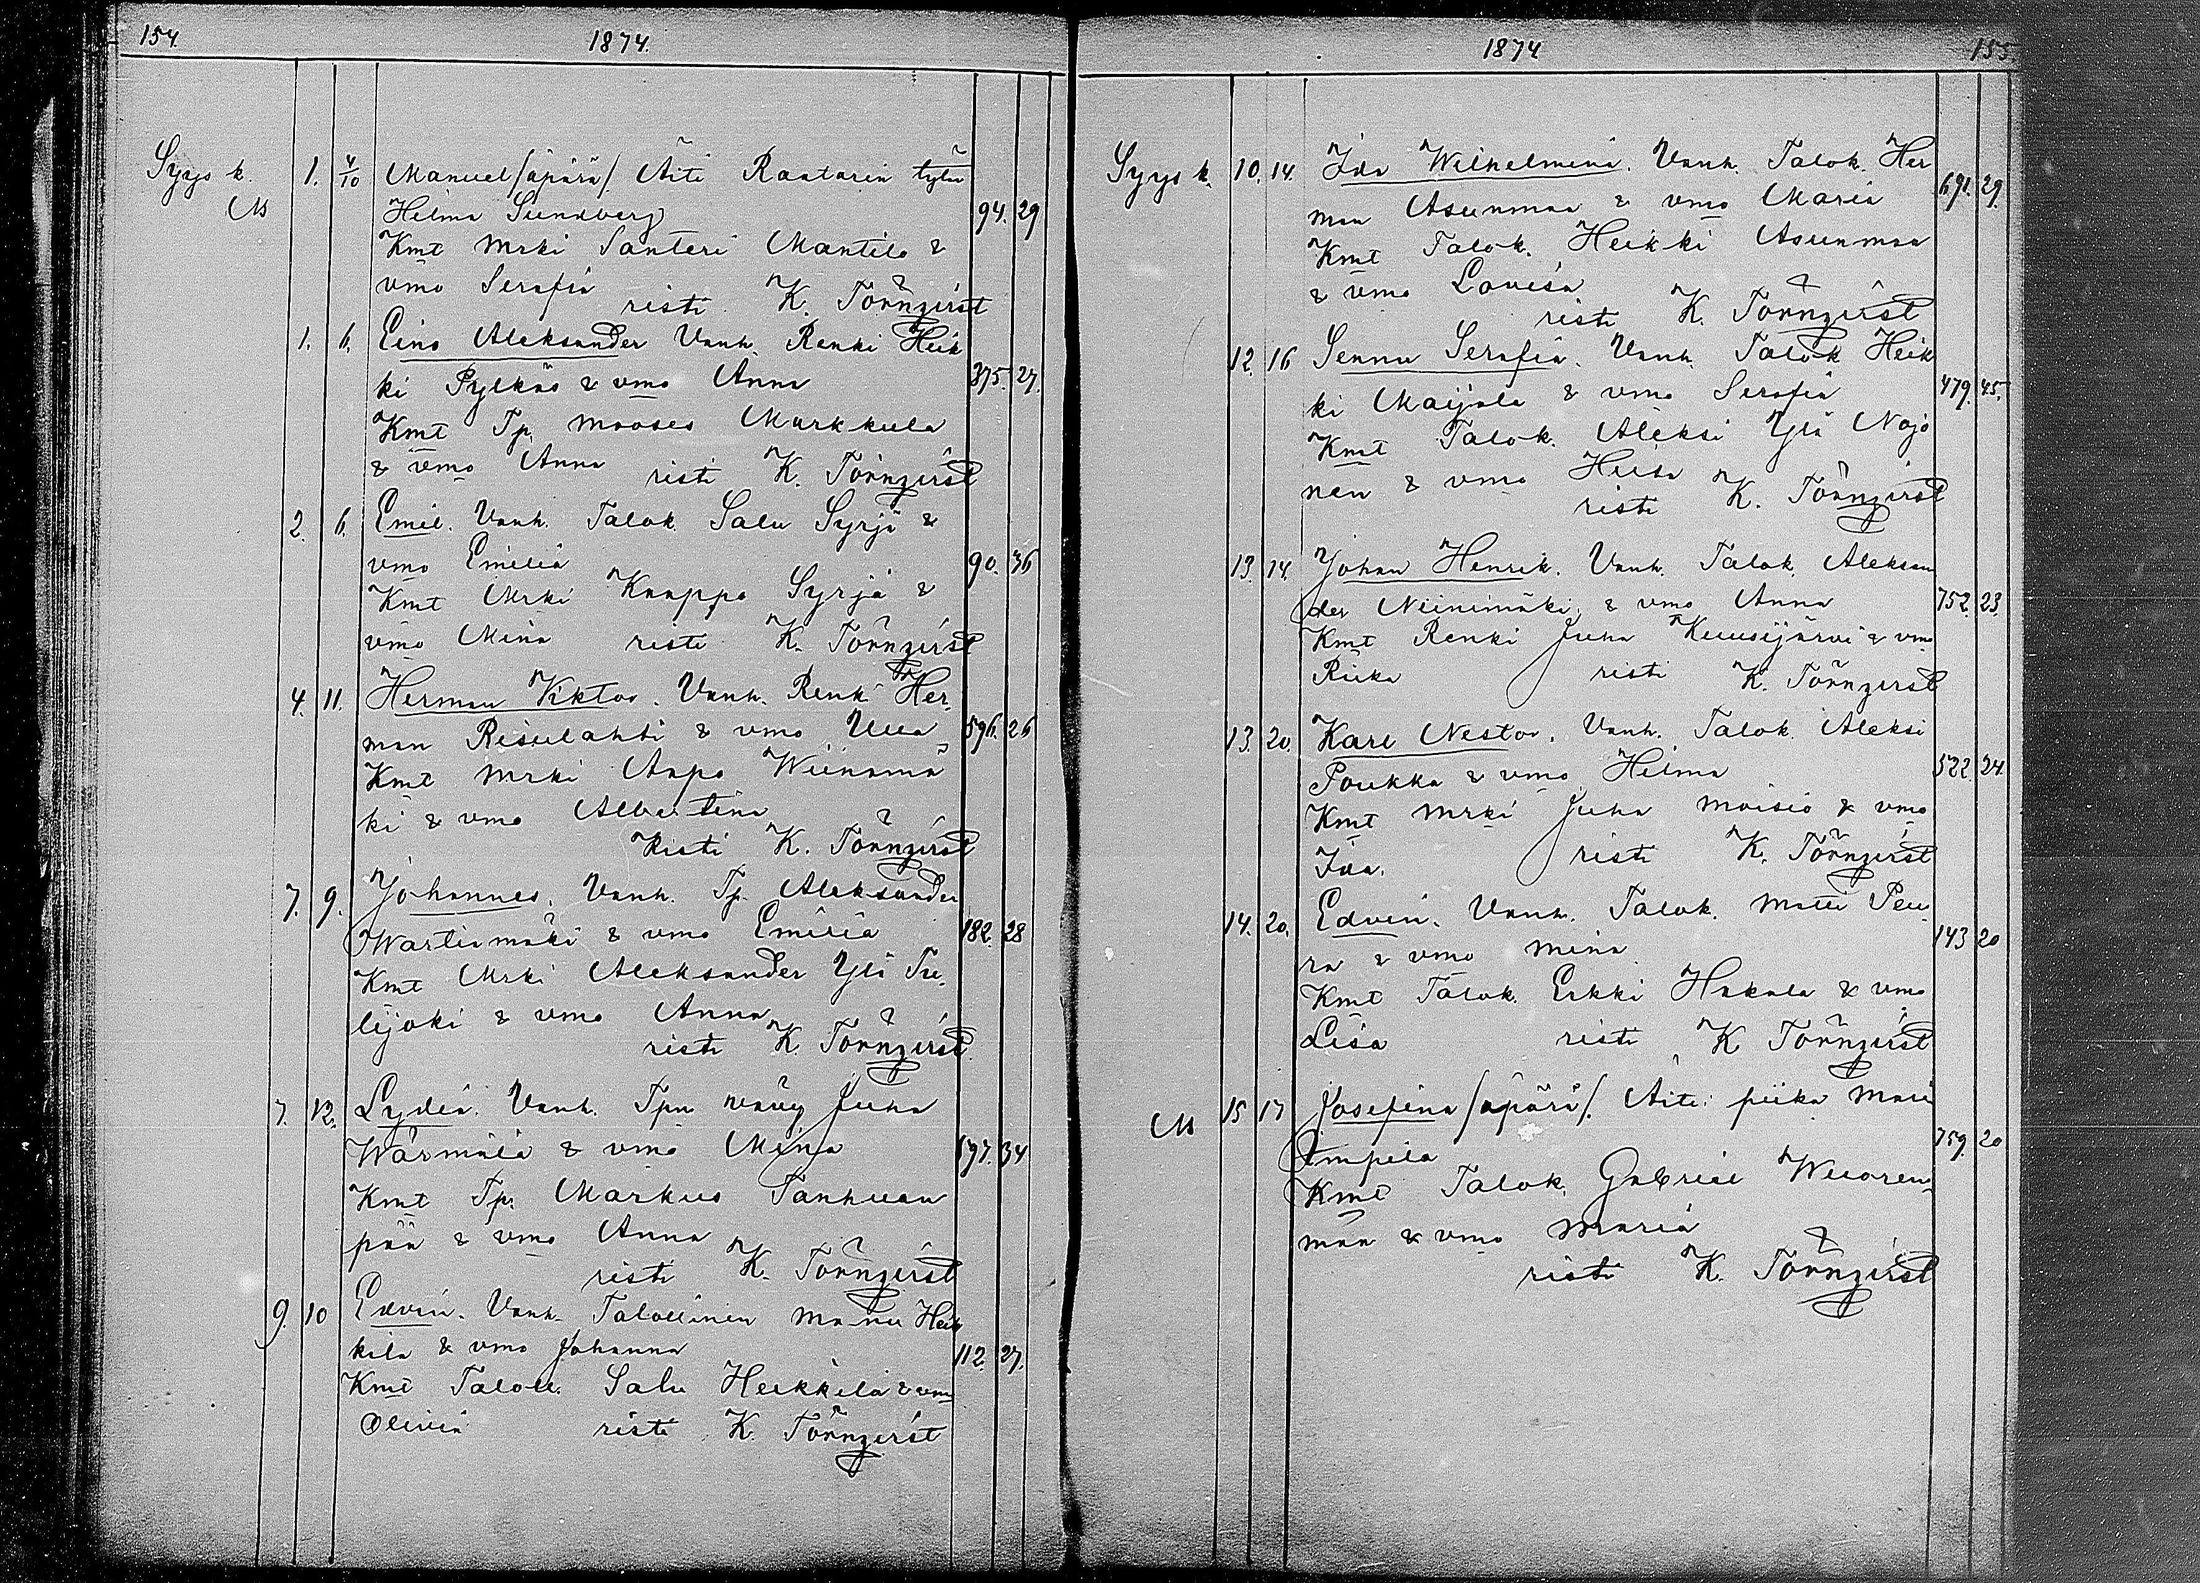 154. 1874.
Syys k. 1. 4/10 Manuel /äpärä/. Äiti Räätärin tytär
M Helma Sundberg 94. 29
Kmt Mrki Santeri Mantila &
vmo Serafia
risti K. Törnqvist
1. 6. Eino Aleksander Vanh. Renki Heik
ki Pylkäs & vmo Anna 375. 27.
Kmt Tp. Mooses Markkula
& vmo Anna risti K. Törnqvist
2. 6. Emil. Vanh. Talok. Salu Syrjä &
vmo Emilia 90. 36
Kmt Mrki Kaappo Syrjä &
vmo Mina risti K. Törnqvist
4. 11. Herman Viktor. Vanh. Renki Her-
man Risulahti & vmo Ulla 596. 26
Kmt Mrki Aapo Wiinamä
ki & vmo Albertina
Risti K. Törnqvist
7. 9. Johannes. Vanh. Tp. Aleksander
Wartiamäki & vmo Emilia 182. 28
Kmt Mrki Aleksander Ylä Tu-
lijoki & vmo Anna
risti K. Törnqvist
7. 12. Lydia. Vanh. Tpn vävy Juha
Wärmälä & vmo Mina 597. 34
Kmt Tp. Markus Tanhuan
pää & vmo Anna
risti K. Törnqvist
9. 10 Edvin. Vanh. Talollinen Manu Heik
kilä & vmo Johanna 112. 27.
Kmt Taloll. Salu Heikkilä & vmo
Olivia risti K. Törnqvist
1874 155
Syys k. 10. 14. Ida Wilhelmina. Vanh. Talok. Her
man Asunmaa & vmo Maria 691. 29.
Kmt Talok. Heikki Asunmaa
& vmo Lovisa
risti K. Törnqvist
12. 16 Sanna Serafia. Vanh. Talok Heik
ki Maijala & vmo Serafia 479. 45.
Kmt Talok. Aleksi Ylä Nojo
nen & vmo Heisa
risti K. Törnqvist
13. 14. Johan Henrik. Vanh. Talok. Aleksan
der Niinimäki & vmo Anna 752. 23
Kmt Renki Juha Kuusijärvi & vmo
Riika risti K. Törnqvist
13. 20. Karl Nestor. Vanh. Talok. Aleksi
Poukka & vmo Hilma 522. 24.
Kmt Mrki Juha Moisio & vmo
Ida. risti K. Törnqvist
14. 20. Edvin. Vanh. Talok. Matti Peu
ra & vmo Mina 143 20
Kmt Talok. Erkki Hakala & vmo
Lisa risti K Törnqvist
M 15 17 Josefina /äpärä/. Äiti: piika Mari
Ampila 759. 20
Kmt Talok. Gabriel Wuoren-
maa & vmo Maria
risti K. Törnqvist